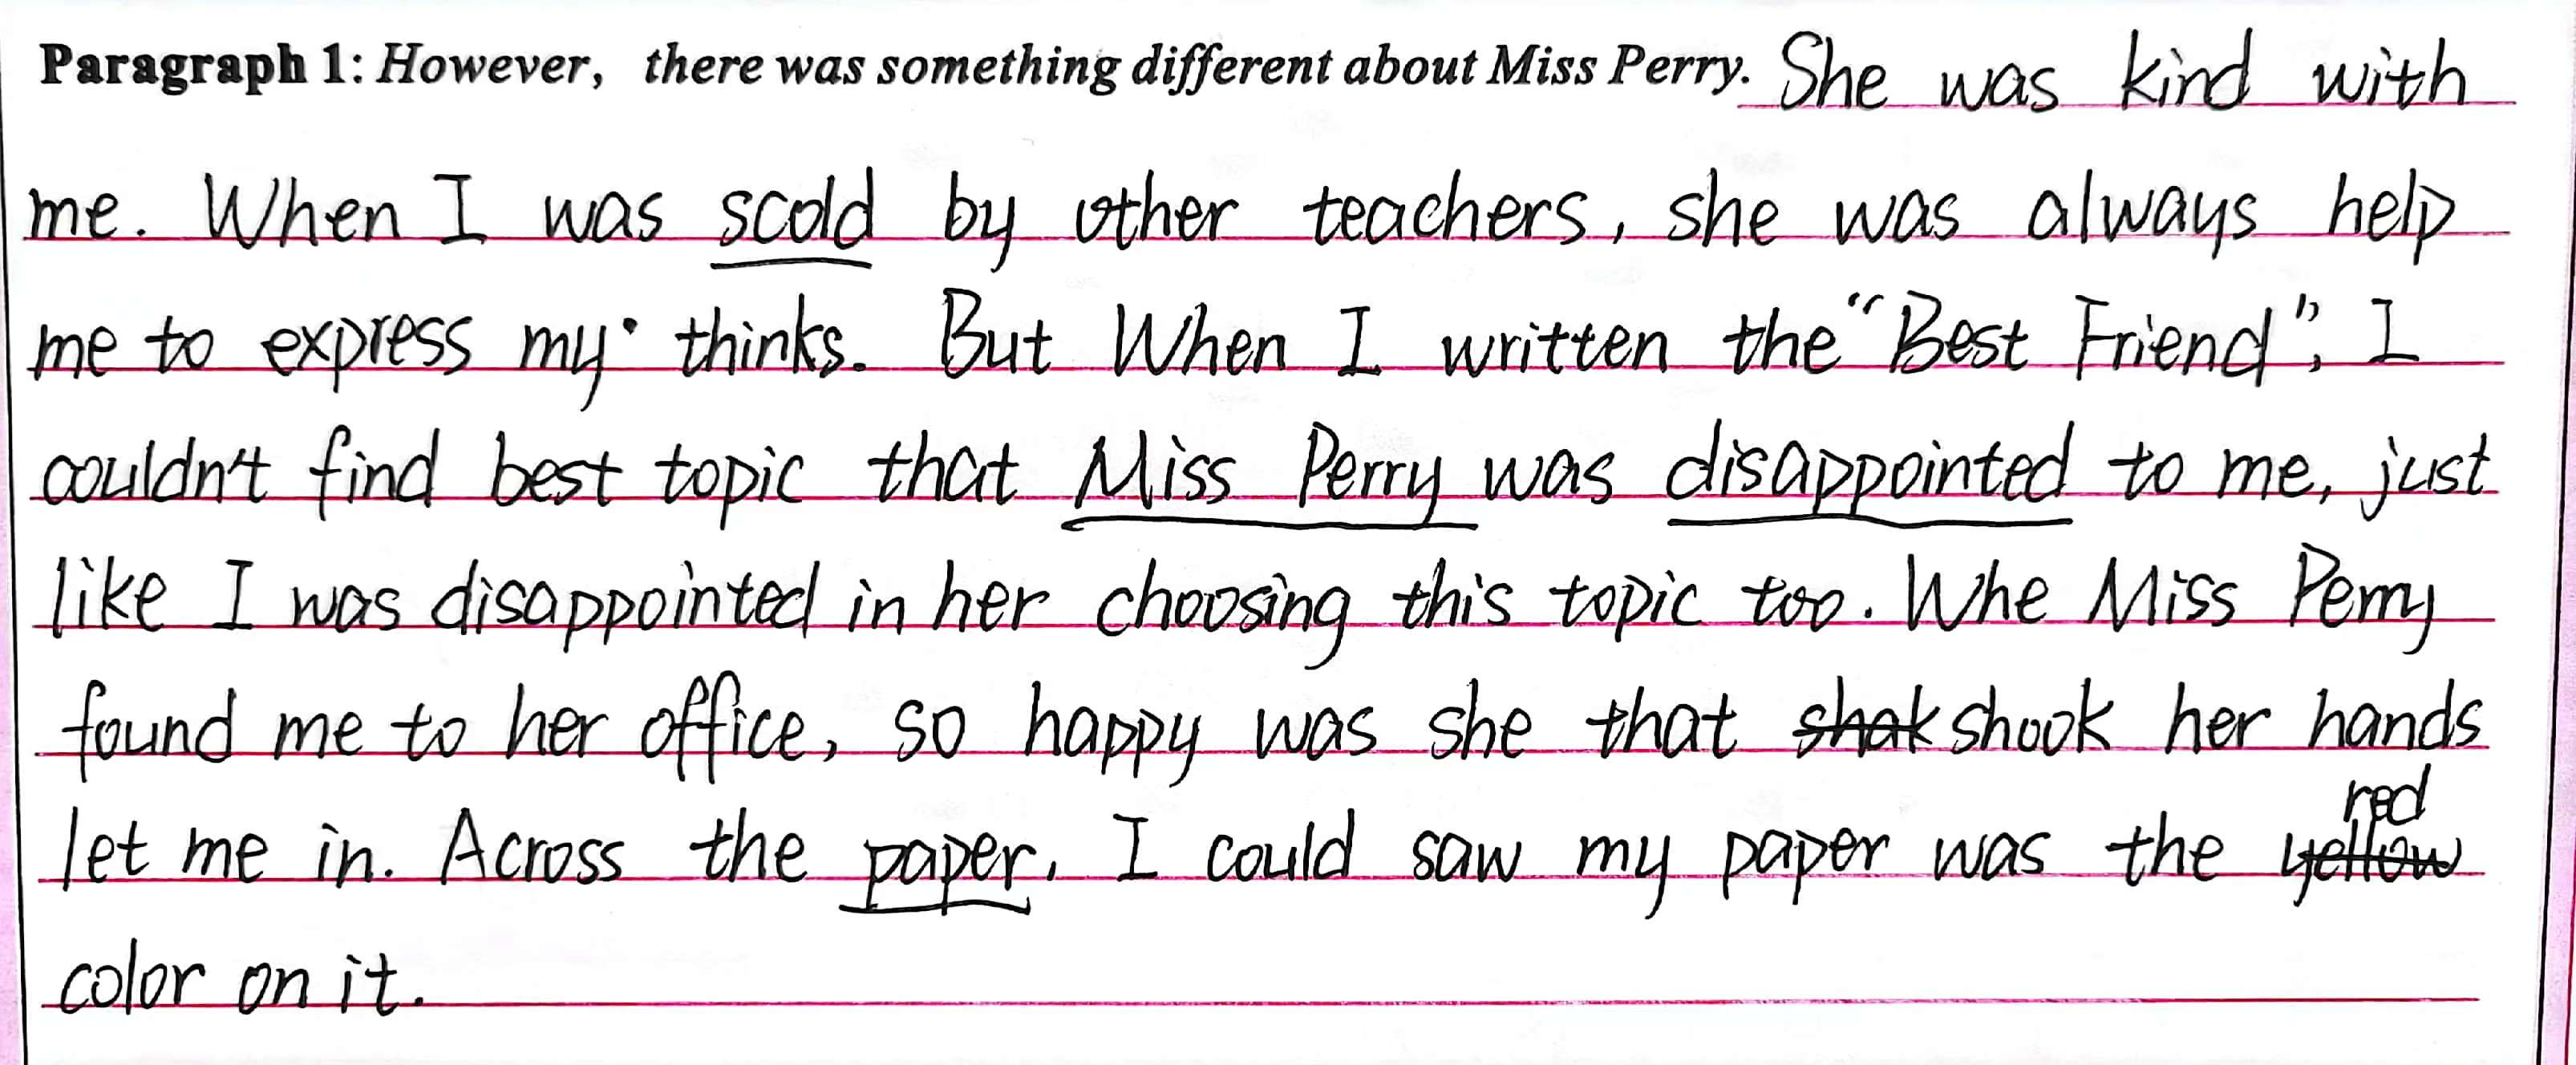 Paragraph 1: However, there was something different about Miss Perry. She was kind with
me. When I was scold by other teachers, she was always help
me to express my thinks. But When I written the "Best Friend", I
couldn't find best topic that Miss Perry was disappointed to me, just
like I was disappointed in her choosing this topic too. Whe Miss Perry
found me to her office, so happy was she that shak shook her hands
let me in. Across the paper, I could saw my paper was the yellow red
color on it.